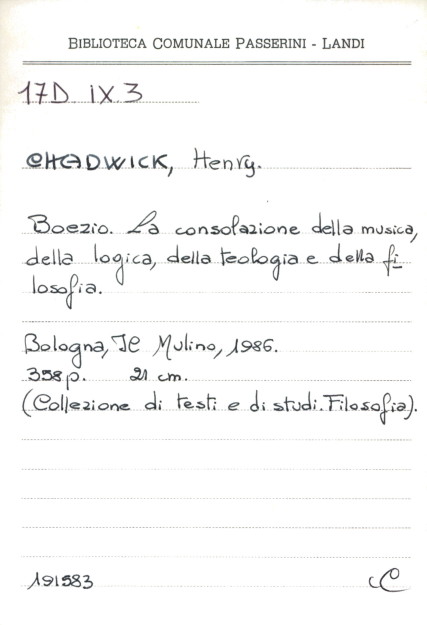 BIBLIOTECA COMUNALE PASSERINI - LANDI
17D IX.3
CHADWICK, Henry.
Boezio. La consolazione della musica,
della logica, della teologia e della fi
losofia.
Bologna, Il Mulino, 1986.
358 p. 21 cm.
(Collezione di testi e di studi. Filosofia).
191583